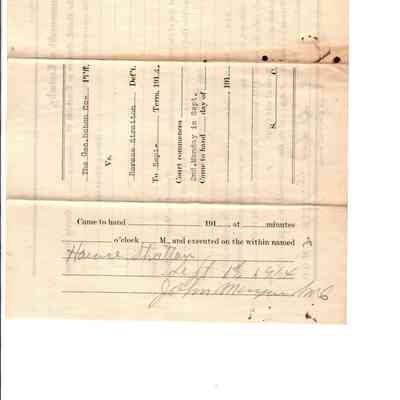 The Geo. Bohon Co. Pl'ff.
Vs.
Horace Stratton Def't.
To Sept. Term, 1914.
Court commences
2nd. Monday in Sept.
Came to hand day of
191
S. C.
Came to hand 191 , at minutes
o'clock M., and executed on the within named
Horace Stratton
Sept 1914
John